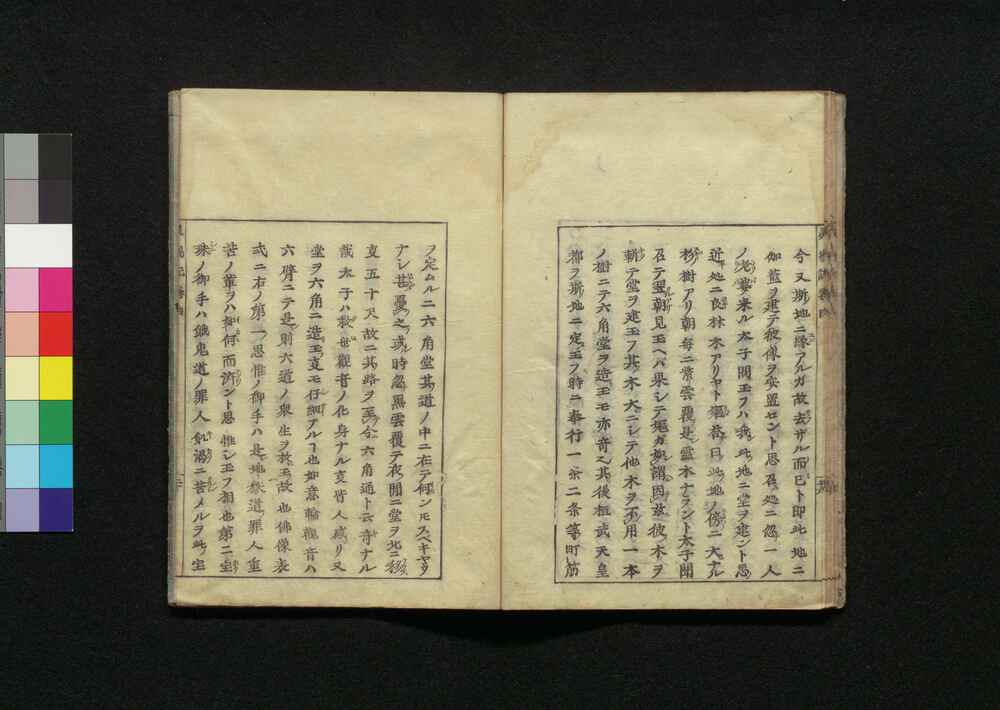 今又斯地ニ縁アルガ故去ザル而已ト即此地ニ
伽藍ヲ建テ彼像ヲ安置セント思召処ニ忽一人
ノ老婆来ル太子問玉フハ我此地ニ堂ヲ建ント思
近処ニ良林木アリヤト嫗答曰此地ノ傍ニ大ナル
杉樹アリ朝毎ニ紫雲覆是霊木ナラント太子聞
召テ翌朝見玉ヘバ果シテ嫗ガ如謂因故彼木ヲ
斬テ堂ヲ建玉フ其木大ニシテ他木ヲ不用一本
ノ樹ニテ六角堂ヲ造玉モ亦奇之其後桓武天皇
都ヲ斯地ニ定玉フ時ニ奉行一条二条等町筋
ヲ定ムルニ六角堂其道ノ中ニ在テ何ンモスベキヤウ
ナシ甚憂之或時忽黒雲覆テ夜間ニ堂ヲ北ニ
支五十尺故ニ其路ヲ至今六角通ト云奇ナル
哉太子ハ救世観音ノ化身ナル支皆人感リ又
堂ヲ六角ニ造玉支モ仔細アルヿ也如意輪観音ハ
六臂ニテ是則六道ノ衆生ヲ救玉故也仏像表
弐ニ右ノ第一思惟ノ御手ハ是地獄道罪人重
苦ノ輩ヲハ如何而済ント思惟シ玉フ相也第二宝
珠ノ御手ハ餓鬼道ノ罪人飢渇ニ苦メルヲ此宝